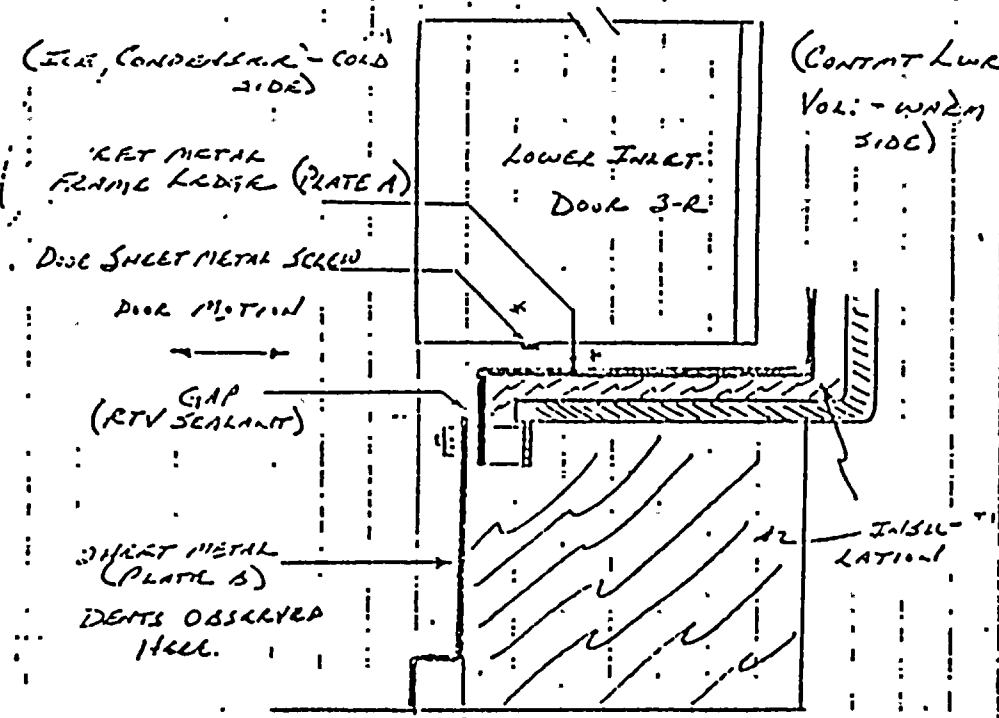 (ICE, CONDENSER - COLD
SIDE)
(CONTMT LWR
VOL: - WARM
SIDE)
METAL
FRAME LEDGE (PLATE A)
LOWER INLET
DOOR 3-R
DOOR SHEET METAL SCREW
DOOR MOTION
GAP
(RTV SEALANT)
SHEET METAL
(PLATE B)
DENTS OBSERVED
HERE.
INSUL-
LATION